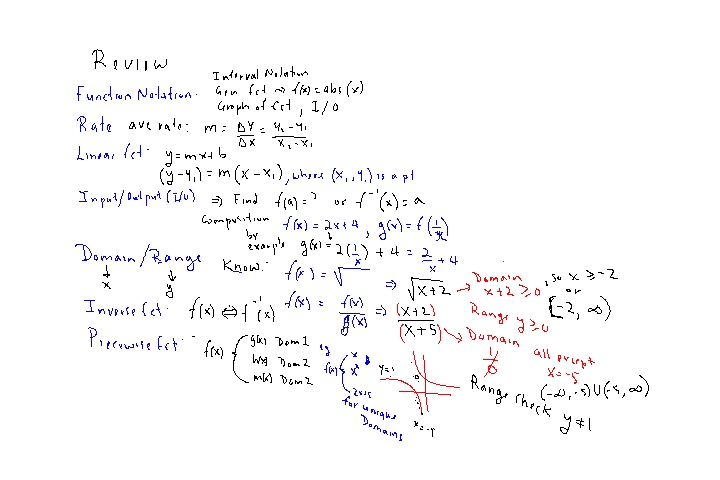 Review
Interval Notation
Function Notation: Gen fct => f(x) = abs(x)
Graph of fct, I/O
Rate ave rate: m = ΔY/ΔX = y₂-y₁/x₂-x₁
Linear fct: y = mx + b
(y - y₁) = m(x - x₁), where (x₁, y₁) is a pt
Input/Output (I/O) => Find f(a) = ? or f⁻¹(x) = a
Composition by example f(x) = 2x+4, g(x) = f(1/x)
g(x) = 2(1/x) + 4 = 2/x + 4
Domain/Range Know: f(x) = √ => √x+2 → Domain x+2 ≥ 0, so x ≥ -2 or [-2, ∞)
x y
Range y ≥ 0
Inverse fct: f(x) ⇔ f⁻¹(x) f(x) = f(x)/g(x) => (x+2)/(x+5) → Domain 1/0 all except x = -5
(-∞, -5)∪(-5, ∞)
Range check y ≠ 1
Piecewise fct: f(x) { g(x) Dom 1
h(x) Dom 2
m(x) Dom 2
eg f(x) { x
x
2x+5
for unique
Domains
y=1